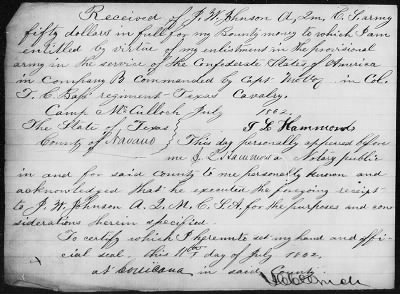 Received of J. W. Johnson A. Q. M. C. S. army
fifty dollars in full for my Bounty money to which I am
entitled by virtue of my enlistment in the provisional
army in the service of the Confederate States of America
in Company B Commanded by Capt in Col.
T. C. Bass regiment Texas Cavalry.
Camp McCulloch July 1862.
The State of Texas } T L Hammonds
County of Navaro } This day personally appeared before
me J L Hammond a Notary public
in and for said county to me personally known and
acknowledged that he executed the foregoing receipt
to J. W. Johnson A. Q. M. C. S. A. for the purposes and con
siderations herein specified
To certify which I hereunto set my hand and offi-
cial seal this day of July 1862.
at Corsicana in said County